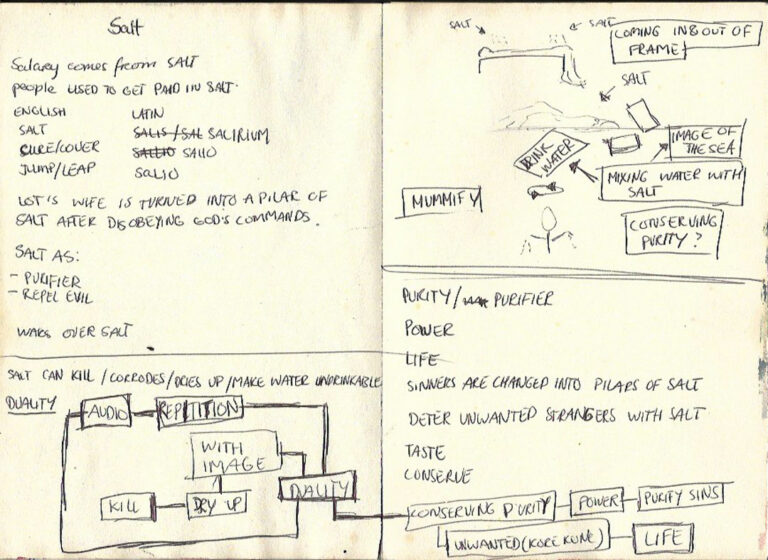 Salt
Salary comes from SALT
people USED TO GET PAID IN SALT.
ENGLISH LATIN
SALT SALIS/SAL SALIRIUM
CURE/COVER SALLIO SALIO
JUMP/LEAP SALIO
LOT'S WIFE IS TURNED INTO A PILAR OF
SALT AFTER DISOBEYING GOD'S COMMANDS.
SALT AS:
- PURIFIER
- REPEL EVIL
WARS OVER SALT
SALT CAN KILL / CORRODES / DRIES UP / MAKE WATER UNDRINKABLE
DUALITY
AUDIO
REPITITION
WITH
IMAGE
DUALITY
KILL
DRY UP
SALT
SALT
COMING IN & OUT OF
FRAME
SALT
DRINK
WATER
IMAGE OF
THE SEA
MIXING WATER WITH
SALT
MUMMIFY
CONSERVING
PURITY?
PURITY/ PURIFIER
POWER
LIFE
SINNERS ARE CHANGED INTO PILARS OF SALT
DETER UNWANTED STRANGERS WITH SALT
TASTE
CONSERVE
CONSERVING PURITY
POWER
PURITY SINS
UNWANTED (KORE KUNE)
LIFE